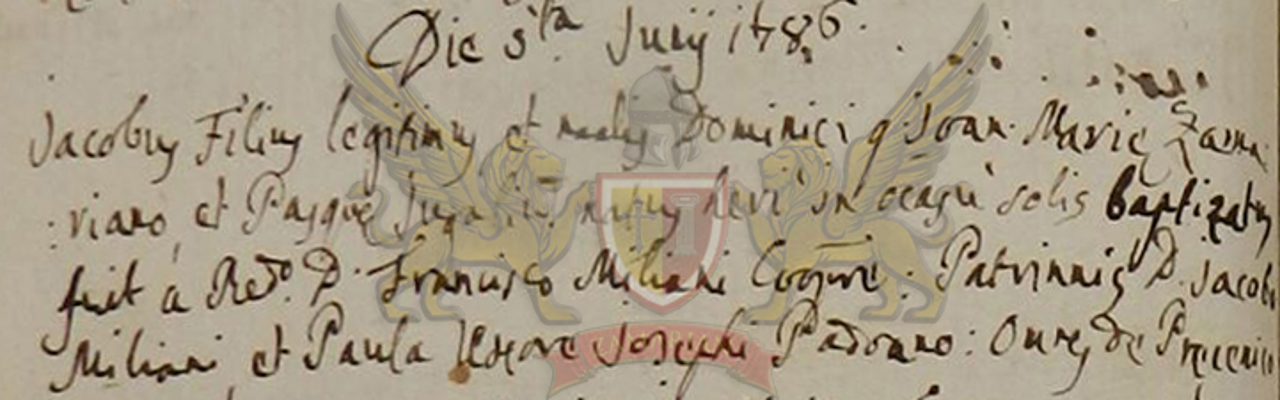 Die 5ta Junij 1786.
Jacobus Filius legitimus et nalis Dominici q Joan Mariæ Zama
:riano, et Pasquæ jugalium, natus heri in occasu solis baptizatus
fuit a Redo. D. Francisco Miliani Coopre: Patrinnis D. Jacobo
Miliani et Paula Uxore Josephi Padoano: Omnes de Precenico